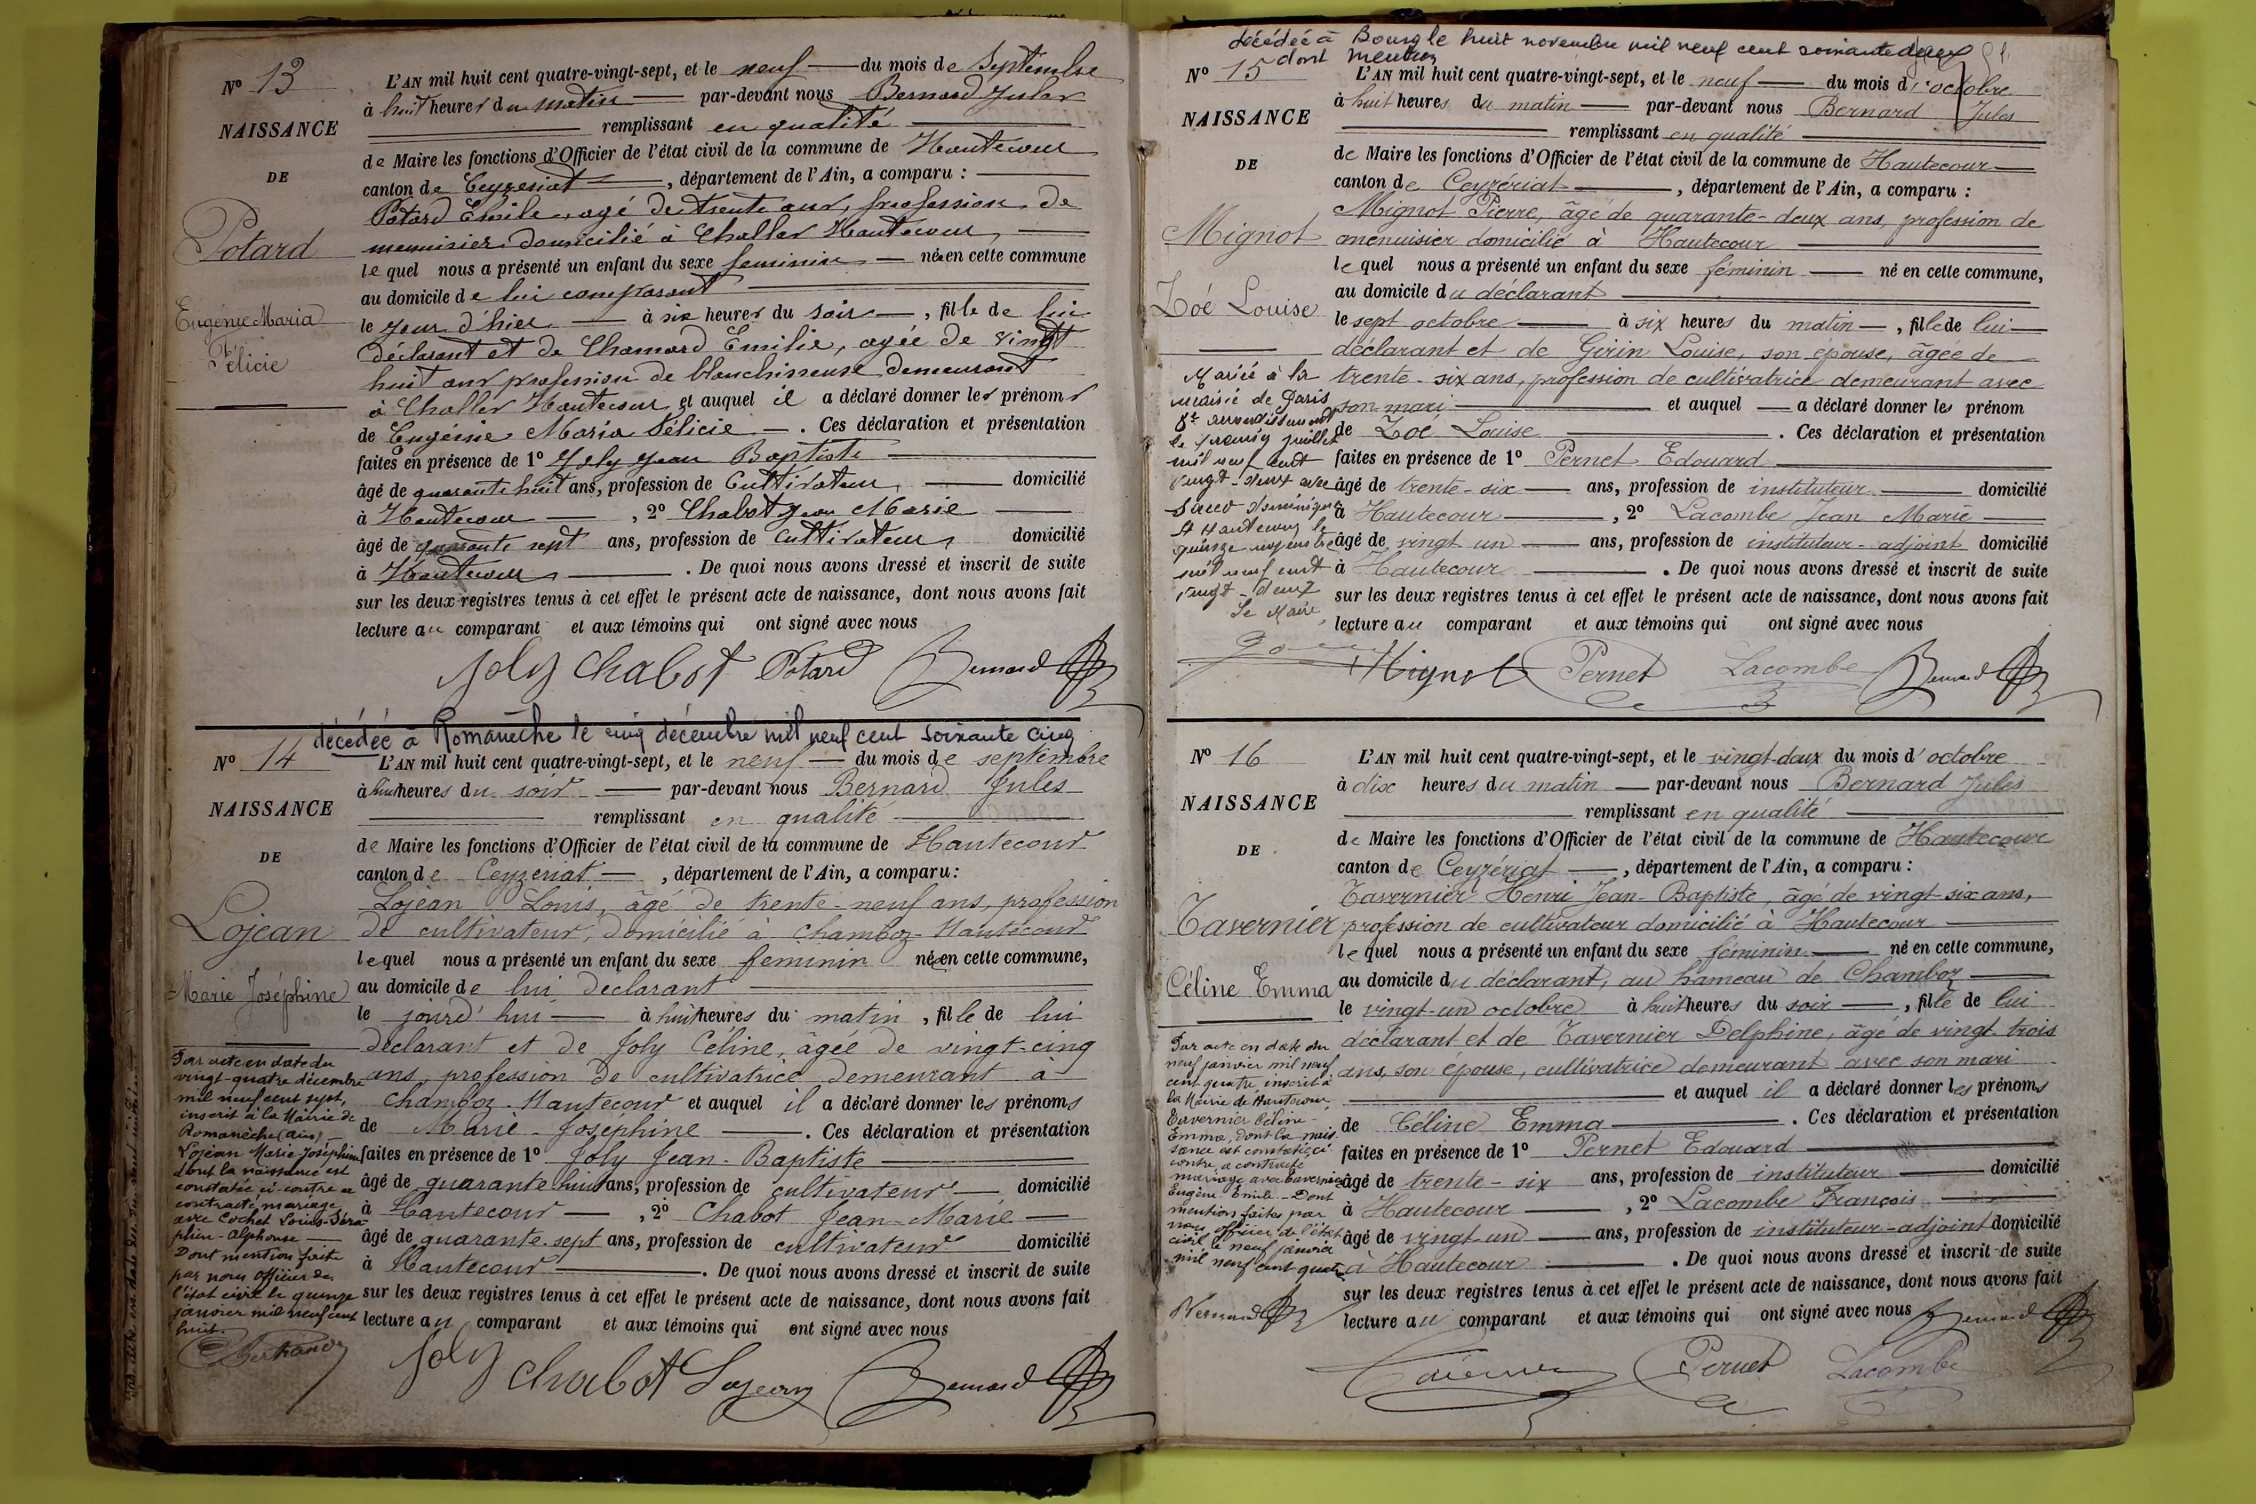 Nº 13
NAISSANCE
DE
Potard
Eugénie Maria
Félicie
L'AN mil huit cent quatre-vingt-sept, et le neuf du mois de Septembre
à huit heures du matin par-devant nous Bernard Jules
remplissant en qualité
de Maire les fonctions d'Officier de l'état civil de la commune de Hautecour
canton de Ceyzeriat, département de l'Ain, a comparu :
Potard Emile, agé de trente ans, profession de
menuisier domicilié à Challes Hautecour,
lequel nous a présenté un enfant du sexe feminin née en cette commune
au domicile de lui comparant
le jour d'hier à six heures du soir, fille de lui
déclarant et de Chamard Emilie, agée de vingt
huit ans profession de blanchisseuse demeurant
à Challes Hautecour et auquel il a déclaré donner les prénoms
de Eugénie Maria Félicie. Ces déclaration et présentation
faites en présence de 1º Joly Jean Baptiste
âgé de quarante huit ans, profession de Cultivateur, domicilié
à Hautecour, 2º Chabot Jean Marie
âgé de quarante sept ans, profession de Cultivateur, domicilié
à Hautecour. De quoi nous avons dressé et inscrit de suite
sur les deux registres tenus à cet effet le présent acte de naissance, dont nous avons fait
lecture au comparant et aux témoins qui ont signé avec nous
Joly Chabot Potard Bernard
décédée à Romanèche le cinq décembre mil neuf cent soixante cinq
Nº 14
NAISSANCE
DE
Lojean
Marie Joséphine
Par acte en date du
vingt-quatre décembre
mil neuf cent sept,
inscrit à la Mairie de
Romanèche (Ain)
Lojean Marie Joséphine
dont la naissance est
constatée ci-contre a
contracté mariage
avec Cochet Louis-Séra-
phin-Alphonse
Dont mention faite
par nous officier de
l'état civil le quinze
janvier mil neuf cent
huit.
Bertrand
L'AN mil huit cent quatre-vingt-sept, et le neuf du mois de septembre
à huit heures du soir par-devant nous Bernard Jules
remplissant en qualité
de Maire les fonctions d'Officier de l'état civil de la commune de Hautecour
canton de Ceyzeriat, département de l'Ain, a comparu :
Lojean Louis, âgé de trente-neuf ans, profession
de cultivateur, domicilié à Chamboz-Hautecour
lequel nous a présenté un enfant du sexe feminin née en cette commune,
au domicile de lui declarant
le jourd'hui à huit heures du matin, fille de lui
déclarant et de Joly Céline, âgée de vingt-cinq
ans, profession de cultivatrice demeurant à
Chamboz-Hautecour et auquel il a déclaré donner les prénoms
de Marie-Josephine. Ces déclaration et présentation
faites en présence de 1º Joly Jean-Baptiste
âgé de quarante huit ans, profession de cultivateur domicilié
à Hautecour, 2º Chabot Jean-Marie
âgé de quarante-sept ans, profession de cultivateur domicilié
à Hautecour. De quoi nous avons dressé et inscrit de suite
sur les deux registres tenus à cet effet le présent acte de naissance, dont nous avons fait
lecture au comparant et aux témoins qui ont signé avec nous
Joly Chabot Lojean Bernard
décédée à Bourg le huit novembre mil neuf cent soixante deux
dont mention
Nº 15
NAISSANCE
DE
Mignot
Zoé Louise
Mariée à la
mairie de Paris
8e arrondissement
le juillet
mil neuf cent
vingt-deux avec
Dominique
Hautecour le
quinze novembre
mil neuf cent
vingt-deux
Le Maire,
L'AN mil huit cent quatre-vingt-sept, et le neuf du mois d'octobre
à huit heures du matin par-devant nous Bernard Jules
remplissant en qualité
de Maire les fonctions d'Officier de l'état civil de la commune de Hautecour
canton de Ceyzériat, département de l'Ain, a comparu :
Mignot Pierre, âgé de quarante-deux ans, profession de
menuisier domicilié à Hautecour
lequel nous a présenté un enfant du sexe féminin né en cette commune,
au domicile du déclarant
le sept octobre à six heures du matin, fille de lui
déclarant et de Girin Louise, son épouse, âgée de
trente-six ans, profession de cultivatrice demeurant avec
son mari et auquel a déclaré donner les prénom
de Zoé Louise. Ces déclaration et présentation
faites en présence de 1º Pernet Edouard
âgé de trente-six ans, profession de instituteur domicilié
à Hautecour, 2º Lacombe Jean Marie
âgé de vingt un ans, profession de instituteur-adjoint domicilié
à Hautecour. De quoi nous avons dressé et inscrit de suite
sur les deux registres tenus à cet effet le présent acte de naissance, dont nous avons fait
lecture au comparant et aux témoins qui ont signé avec nous
Mignot Pernet Lacombe Bernard
Nº 16
NAISSANCE
DE
Tavernier
Céline Emma
Par acte en date du
neuf janvier mil neuf
cent quatre inscrit à
la Mairie de Hautecour,
Tavernier Céline
Emma, dont la nais-
sance est constatée ci
contre, a contracté
mariage avec Tavernier
Eugène-Emile-Dont
mention faites par
nous officier de l'état
civil le neuf janvier
mil neuf cent quatre
Bernard
L'AN mil huit cent quatre-vingt-sept, et le vingt-deux du mois d'octobre
à dix heures du matin par-devant nous Bernard Jules
remplissant en qualité
de Maire les fonctions d'Officier de l'état civil de la commune de Hautecour
canton de Ceyzériat, département de l'Ain, a comparu :
Tavernier Henri Jean-Baptiste, âgé de vingt-six ans,
profession de cultivateur domicilié à Hautecour
lequel nous a présenté un enfant du sexe féminin né en cette commune,
au domicile du déclarant, au hameau de Chamboz
le vingt-un octobre à huit heures du soir, fille de lui
déclarant et de Tavernier Delphine, âgé de vingt trois
ans, son épouse, cultivatrice demeurant avec son mari
et auquel il a déclaré donner les prénoms
de Céline Emma. Ces déclaration et présentation
faites en présence de 1º Pernet Edouard
âgé de trente-six ans, profession de instituteur domicilié
à Hautecour, 2º Lacombe François
âgé de vingt-un ans, profession de instituteur-adjoint domicilié
à Hautecour. De quoi nous avons dressé et inscrit de suite
sur les deux registres tenus à cet effet le présent acte de naissance, dont nous avons fait
lecture au comparant et aux témoins qui ont signé avec nous Bernard
Tavernier Pernet Lacombe